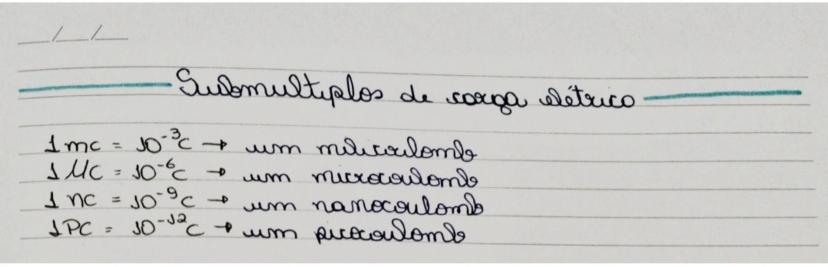 __/__/__
Submultiplos de carga elétrico
1 mc = 10⁻³C → um milicoulomb
1 µC = 10⁻⁶C → um microcoulomb
1 nc = 10⁻⁹C → um nanocoulomb
1 PC = 10⁻¹²C → um picocoulomb